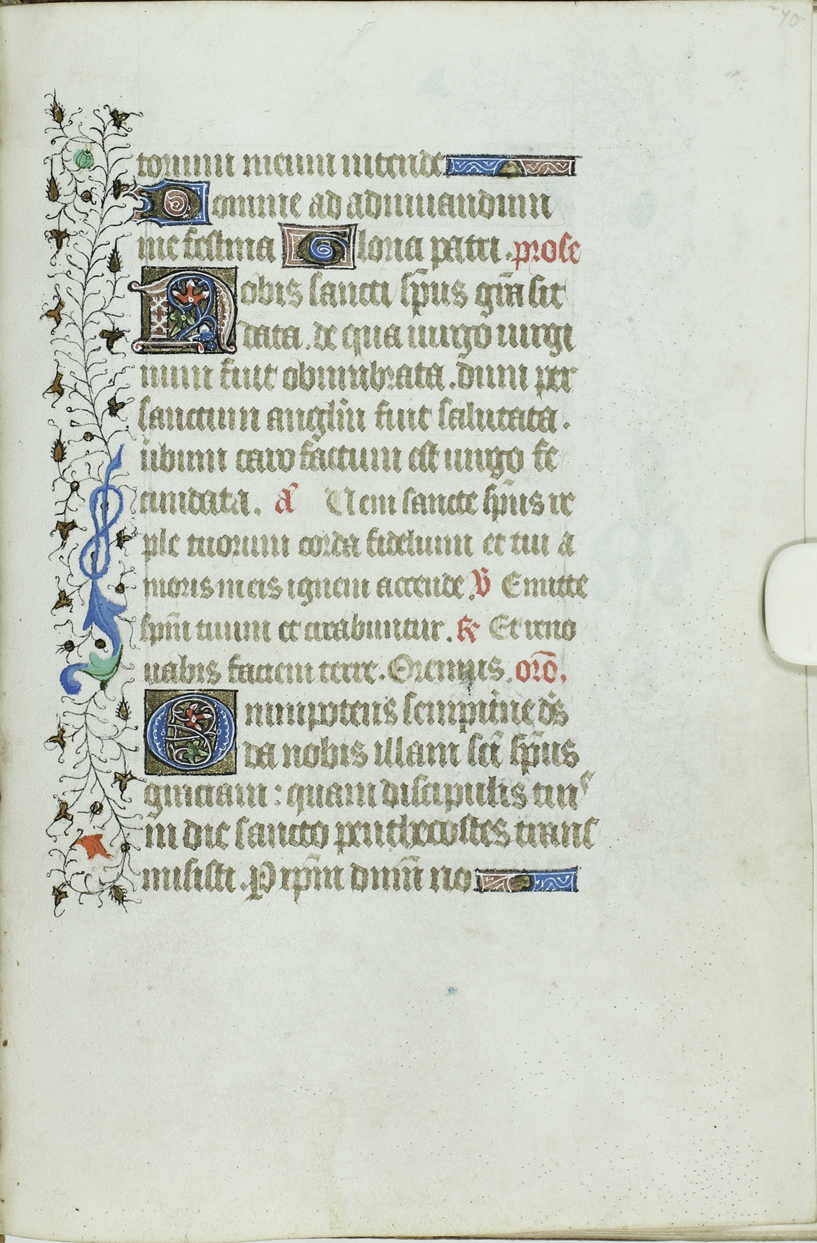 70
torium meum intende
Domine ad adiuuandum
me festina Gloria patri . prose
Nobis sancti sp̅us gr̅a sit
data . de qua uirgo uirgi
num fuit obumbrata . dum per
sanctum angl̅m fuit salutata .
ubum caro factum est uirgo fe
cundata . a̅ Ueni sancte sp̅us re
ple tuorum corda fidelium et tui a
moris in eis ignem accende . v̅ Emitte
sp̅m tuum et creabuntur . R Et reno
uabis faciem terre . Oremus . oro̅ .
Omnipotens sempit̅ne d̅s
da nobis illam sc̅i sp̅us
gr̅aciam : quam discipulis tuis
in die sancto penthecostes trans
misisti . P xp̅m dnm̅ no